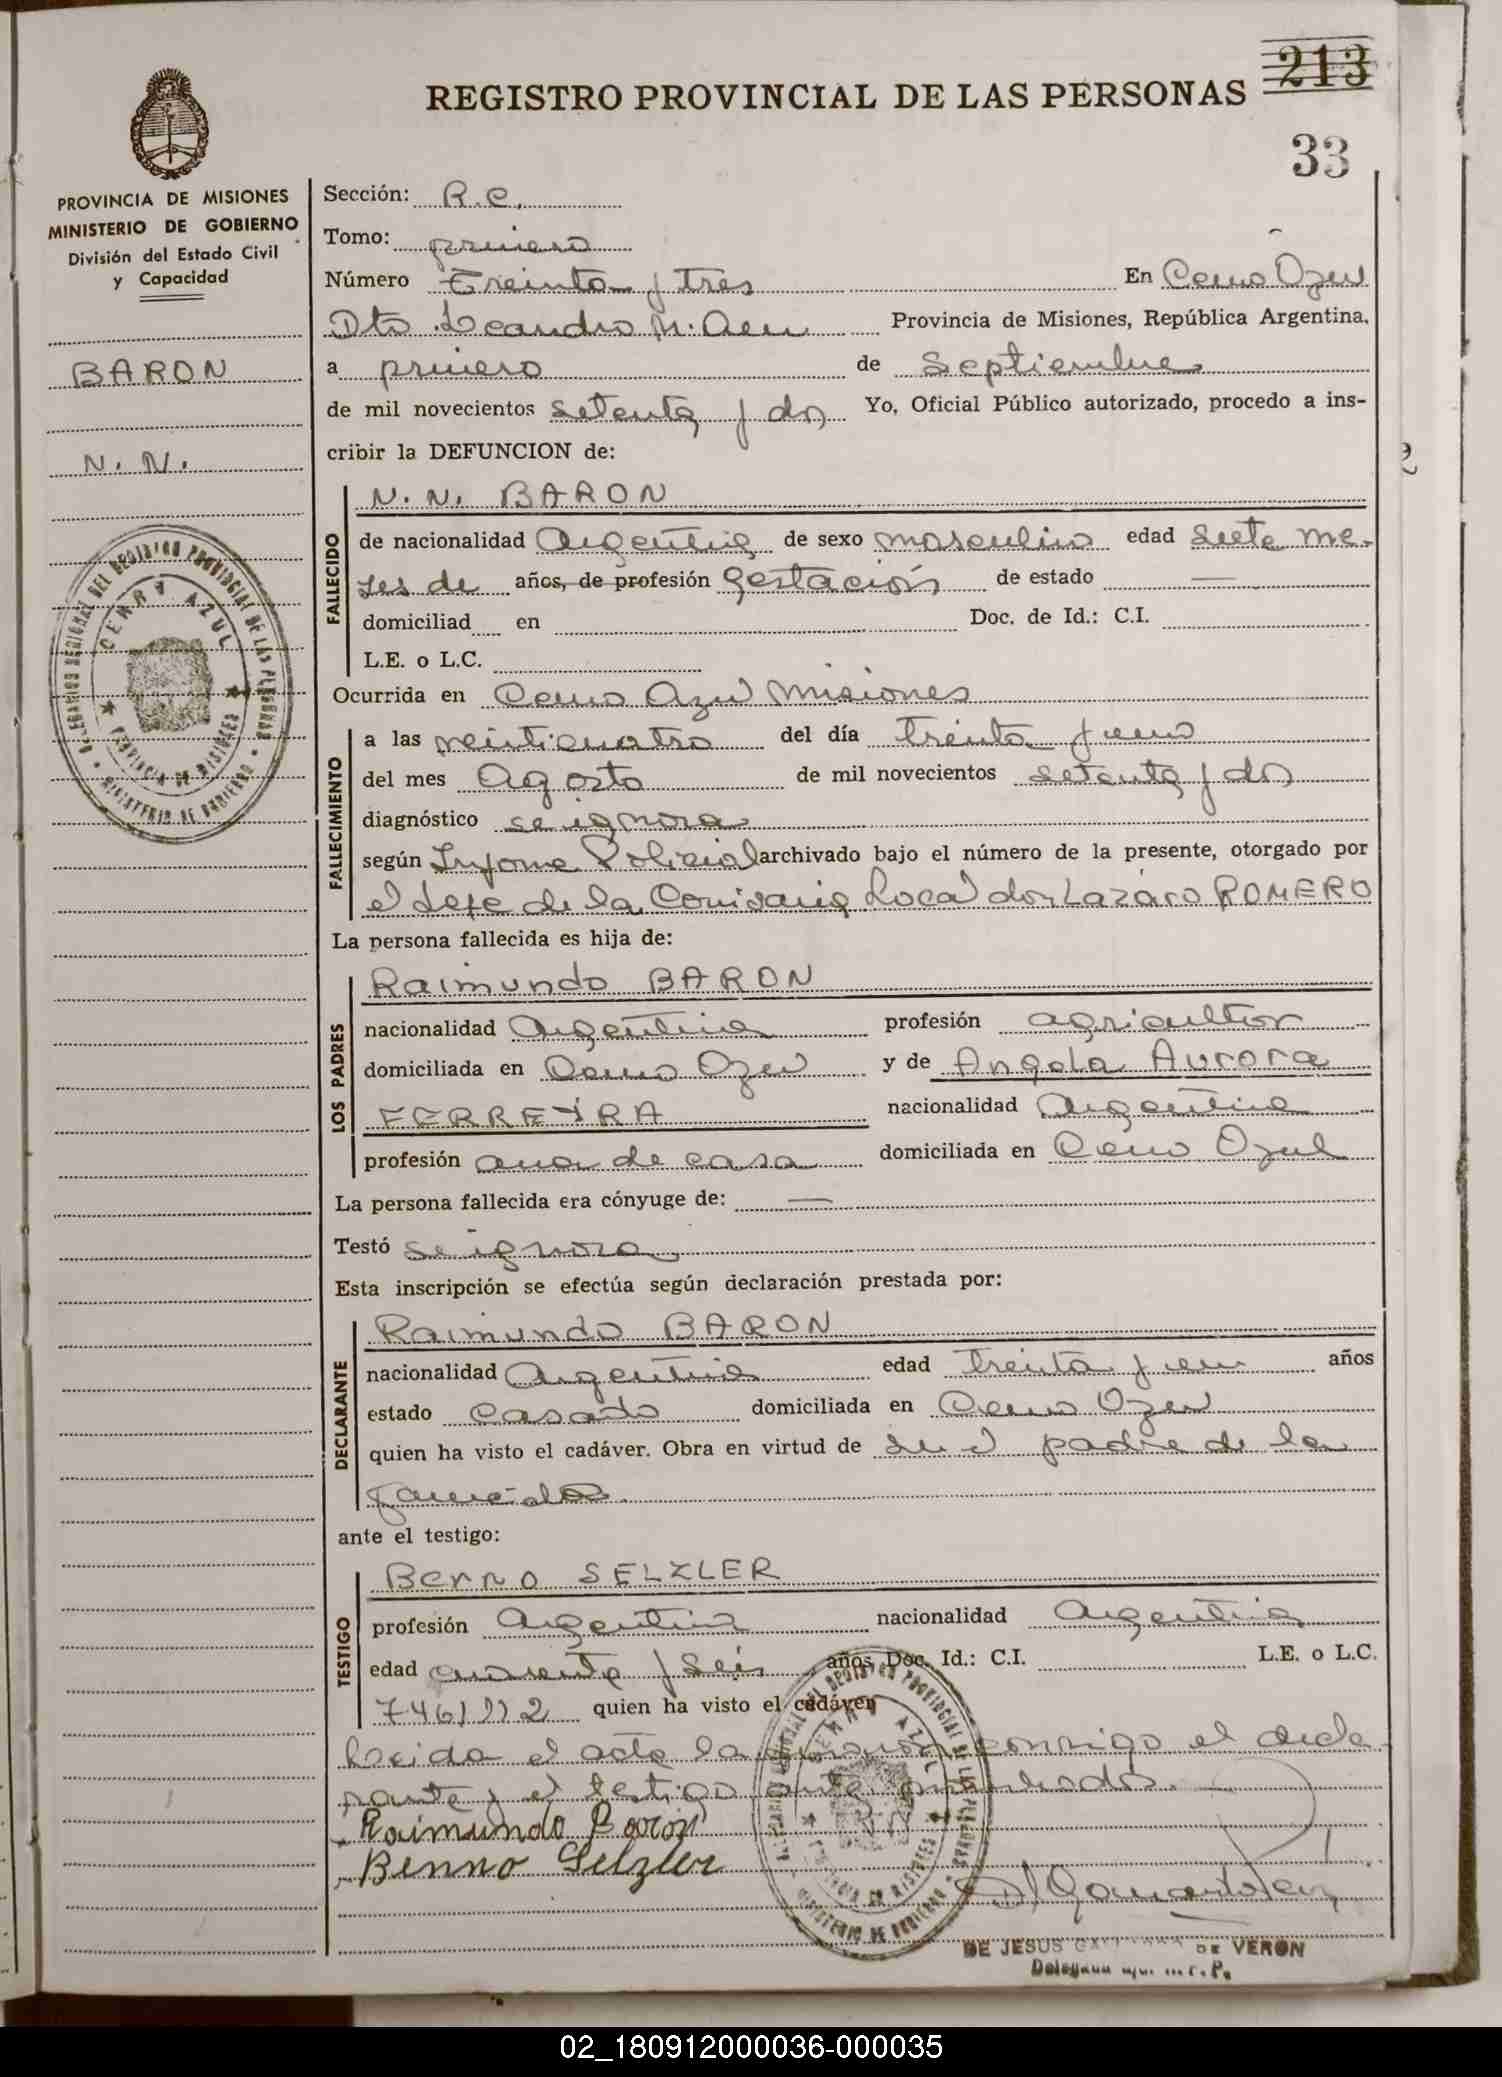 213
REGISTRO PROVINCIAL DE LAS PERSONAS
33
PROVINCIA DE MISIONES
MINISTERIO DE GOBIERNO
División del Estado Civil
y Capacidad
BARON
N. N.
DELEGACION REGIONAL DEL REGISTRO PROVINCIAL DE LAS PERSONAS
CERRO AZUL
PROVINCIA DE MISIONES
MINISTERIO DE GOBIERNO
Sección: R.C.
Tomo: primero
Número Treinta y Tres En Cerro Azul
Dto Leandro N. Alem Provincia de Misiones, República Argentina,
a primero de Septiembre
de mil novecientos setenta y dos Yo, Oficial Público autorizado, procedo a ins-
cribir la DEFUNCION de:
FALLECIDO
N. N. BARON
de nacionalidad Argentina de sexo masculino edad siete me-
ses de años, de profesión Gestación de estado —
domiciliad en Doc. de Id.: C.I.
L.E. o L.C.
Ocurrida en Cerro Azul Misiones
FALLECIMIENTO
a las veinticuatro del día treinta y uno
del mes Agosto de mil novecientos setenta y dos
diagnóstico se ignora
según Informe Policial archivado bajo el número de la presente, otorgado por
el Jefe de la Comisaria Local don Lazaro ROMERO
La persona fallecida es hija de:
LOS PADRES
Raimundo BARON
nacionalidad Argentina profesión agricultor
domiciliada en Cerro Azul y de Angela Aurora
FERREYRA nacionalidad Argentina
profesión ama de casa domiciliada en Cerro Azul
La persona fallecida era cónyuge de: —
Testó se ignora
Esta inscripción se efectúa según declaración prestada por:
DECLARANTE
Raimundo BARON
nacionalidad Argentina edad treinta y un años
estado casado domiciliada en Cerro Azul
quien ha visto el cadáver. Obra en virtud de ser el padre de la
ante el testigo:
TESTIGO
Benno SELZLER
profesión Argentina nacionalidad Argentina
edad cuarenta y seis años Doc. Id.: C.I. L.E. o L.C.
quien ha visto el cadáver
Leida el acta la conmigo el decla-
rante y el testigo ante
Raimundo Baron
Benno Selzler
DELEGACION REGIONAL DEL REGISTRO PROVINCIAL DE LAS PERSONAS
CERRO AZUL
PROVINCIA DE MISIONES
MINISTERIO DE GOBIERNO
DE JESUS DE VERON
02_180912000036-000035